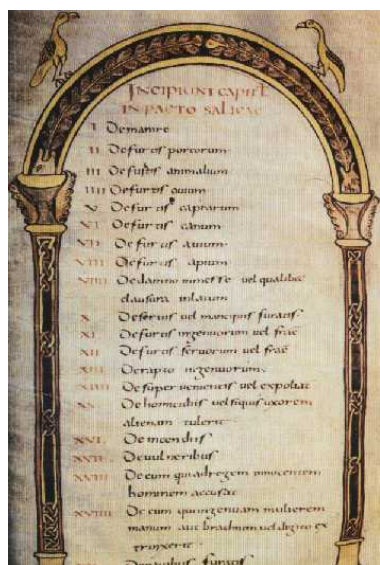 INCIPIUNT CAPITL
IN PACTO SALICAE
I De manire
II De furtis porcorum
III De furtis animalium
IIII De furtis ovium
V De furtis caprarum
VI De furtis canum
VII De furtis avium
VIII De furtis apium
VIIII De damno in messe vel qualibet
clausura inlatum
X De servis vel mancipiis furatis
XI De furtis ingenuorum vel frae
XII De furtis servorum vel frae
XIII De rapto ingenuorum
XIIII De super venientis vel expoliat
XV De homicidiis vel si quis uxorem
alienam tulerit
XVI De incendiis
XVII De vulneribus
XVIII De eum qui ad regem innocentem
hominem accusat
XVIIII De eum qui ingenuam mulierem
manum aut brachium vel digito ex
trinxerit
furatis